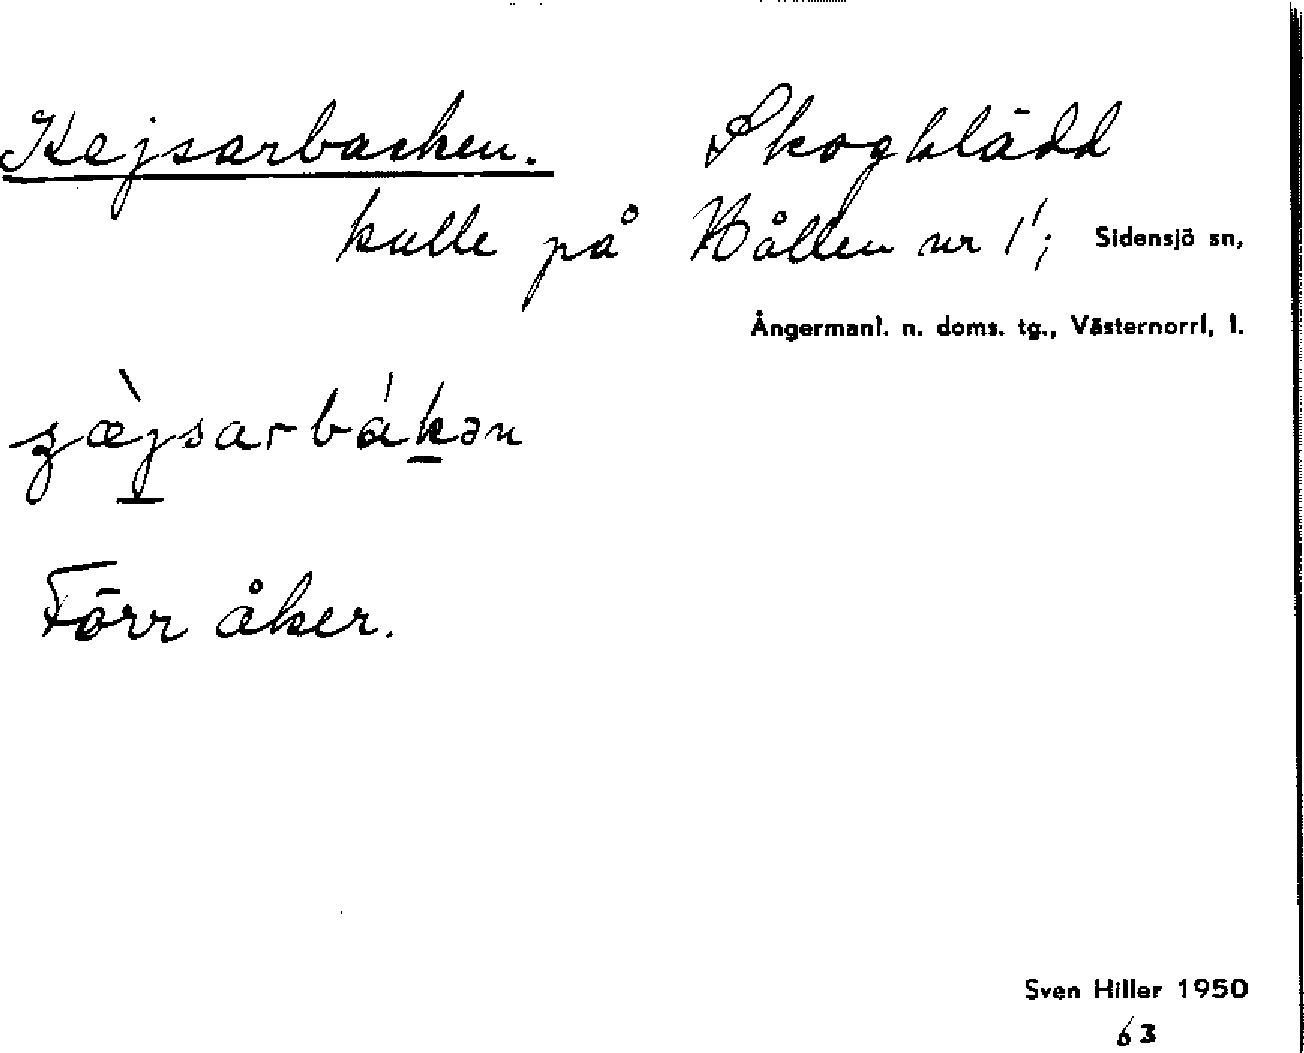 Kejsarbacken. Skogklädd
kulle på Hållen nr 1'; Sidensjö sn,
Ångermanl. n. doms. tg., Västernorrl, l.
Förr åker.
Sven Hiller 1950
63